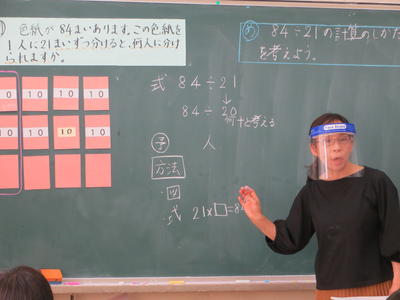 色紙が84まいあります。この色紙を
1人に21まいずつ分けると、何人に分け
られますか。
め 84÷21の計算のしかた
を考えよう。
式 84÷21
84÷20
↓
何十と考える
予 人
方法
・図
・式 21×□=84
10 10 10
10 10 10 10